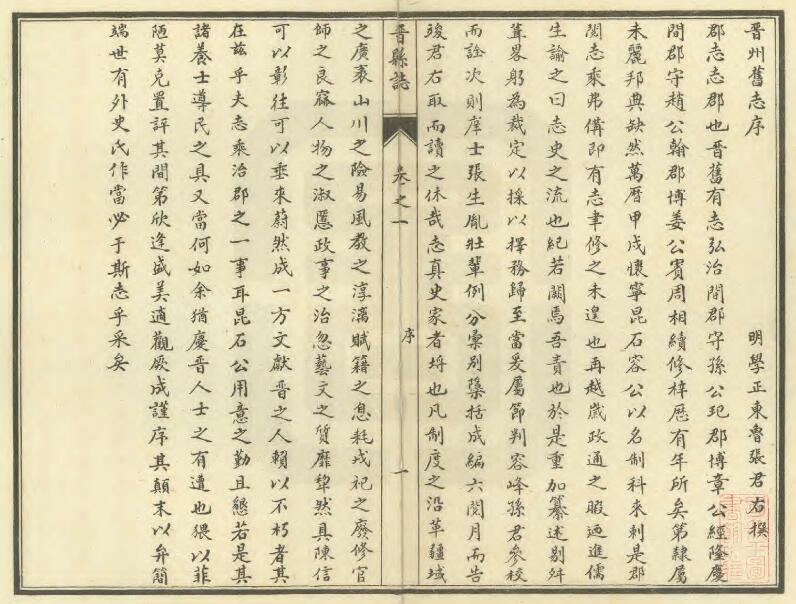 晉州舊志序
明學正東魯張君右撰
郡志志郡也晉舊有志弘治間郡守孫公玘郡博章公經隆慶
間郡守趙公翰郡博姜公賓周相續修梓歷有年所矣第隸屬
未麗邦典缺然萬曆甲戌懷寧昆石容公以名制科來刺是郡
閱志乘弗備即有志聿修之未遑也再越歲政通之暇迺進儒
生諭之曰志史之流也紀若闕焉吾責也於是重加纂述別舛
葺畧躬為裁定以採以擇務歸至當爰屬節判容峰孫君參校
而詮次則庠士張生胤壯輩例分彙別檃括成編六閱月而告
竣君右取而讀之休哉志真史家者埒也凡制度之沿革疆域
晉縣誌
卷之一
序
一
之廣袤山川之險易風教之淳漓賦籍之息耗戎祀之廢修官
師之良窳人物之淑慝政事之治忽藝文之質靡犁然具陳信
可以彰往可以垂來蔚然成一方文獻晉之人賴以不朽者其
在茲乎夫志乘治郡之一事耳昆石公用意之勤且懇若是其
諸養士導民之具又當何如余猶慶晉人士之有遭也猥以菲
陋莫克置評其間第欣逢盛美適觀厥成謹序其顛末以弁簡
端世有外史氏作當必于斯志乎采矣